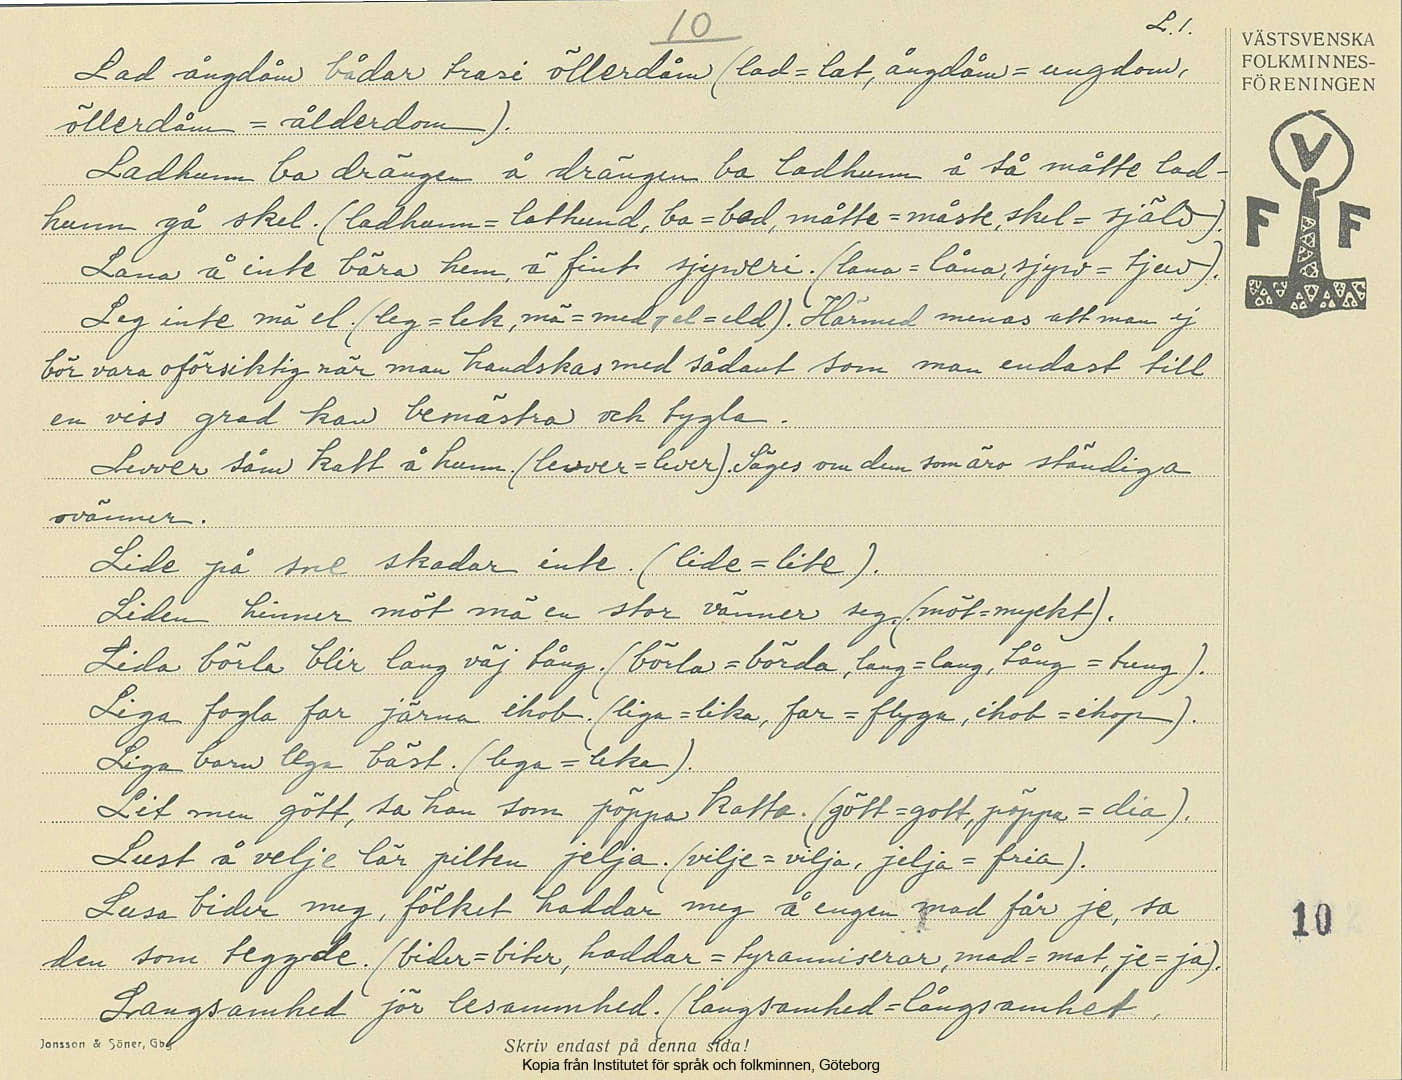 10
L.1.
VÄSTSVENSKA
FOLKMINNES-
FÖRENINGEN
V
F F
Lad ångdåm bådar trasi öllerdåm (lad=lat, ångdåm=ungdom,
öllerdåm = ålderdom).
Ladhunn ba drängen å drängen ba ladhunn å så måtte lad-
hunn gå skel. (ladhunn=lathund, ba=bad, måtte=måste, skel= själv).
Lana å inte bära hem, ä fint sjyveri. (lana=låna, sjyv= tjuv).
Leg inte mä el. (leg=lek, mä=med, el=eld). Härmed menas att man ej
bör vara oförsiktig när man handskas med sådant som man endast till
en viss grad kan bemästra och tygla.
Levver såm katt å hunn. (levver=lever). Säges om dem som äro ständiga
ovänner.
Lide på sne skadar inte. (lide=lite).
Liden hinner möt mä en stor vänner seg. (möt=myckt).
Lida börla blir lang väj tång. (börla=börda, lang=lang, tång =tung).
Liga fogla far järna ihob. (liga=lika, far=flyga, ihob=ihop).
Liga barn lega bäst. (lega=leka).
Lit men gött, sa han som pöppa katta. (gött=gott, pöppa=dia).
Lust å velje lär pilten jelja. (vilje=vilja, jelja=fria).
Lusa bider meg, fölket haddar meg å engen mad får je, sa
den som teggde. (bider=biter, haddar=tyranniserar, mad=mat, je=ja).
Langsamhed jör lesammhed. (langsamhed=långsamhet,
10
Jonsson & Söner, Gbg
Skriv endast på denna sida!
Kopia från Institutet för språk och folkminnen, Göteborg